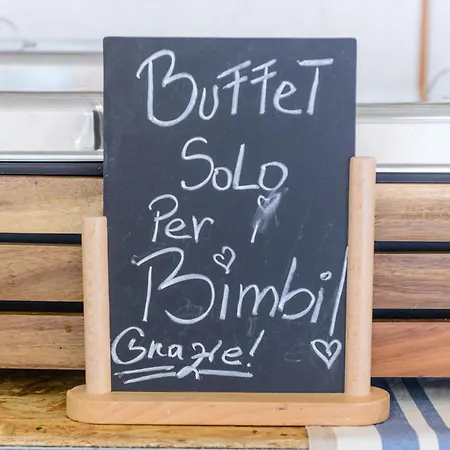 BUFFET
SOLO
Per i
Bimbi!
Grazie!